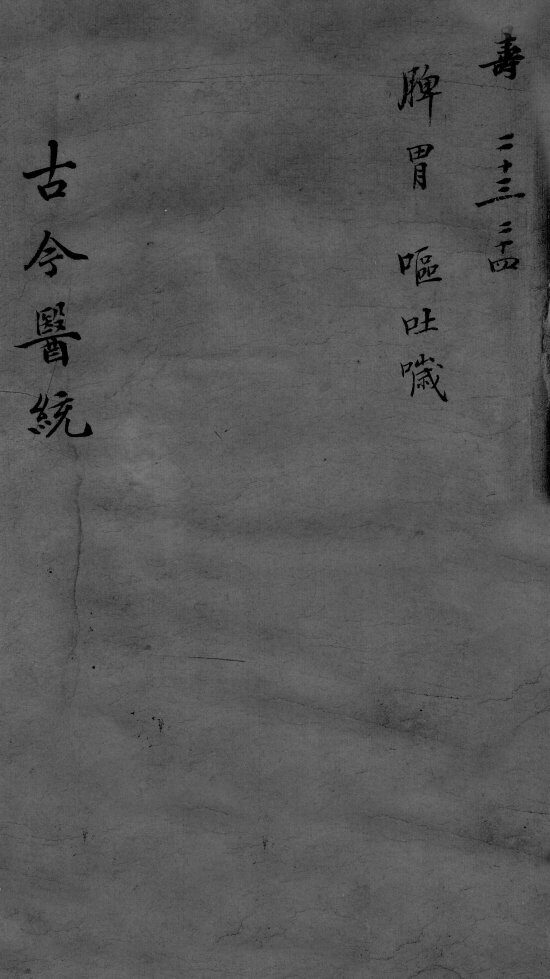 壽 二十三 二十四
脾胃 嘔吐噦
古今醫統